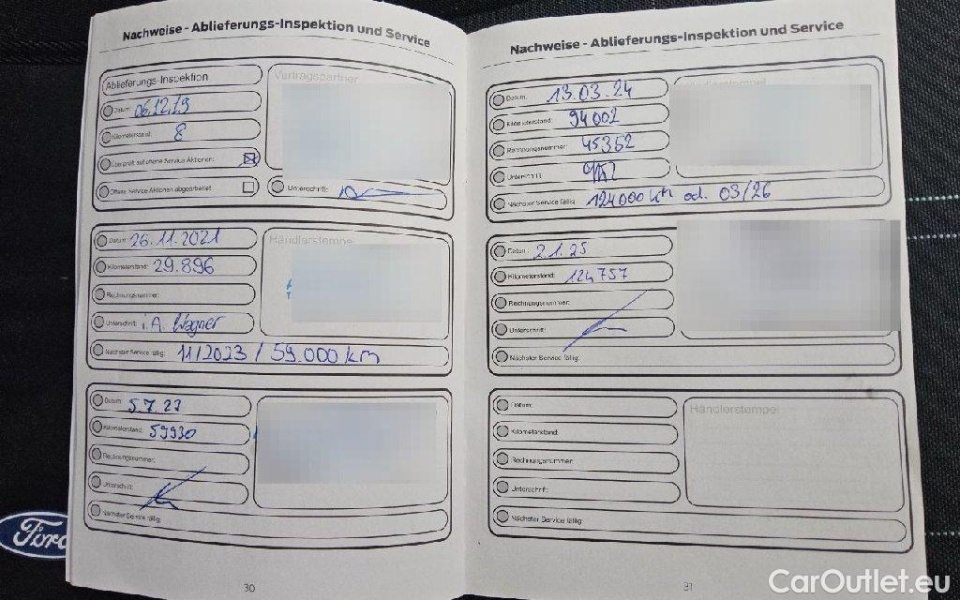 Nachweise - Ablieferungs-Inspektion und Service
Ablieferungs-Inspektion
Vertragspartner
Datum: 06.12.19
Kilometerstand: 8
Überprüft auf offene Service Aktionen:
Offene Service Aktionen abgearbeitet
Unterschrift:
Datum: 26.11.2021
Händlerstempel
Kilometerstand: 29.896
Rechnungsnummer:
Unterschrift: i.A. Wagner
Nächster Service fällig: 11/2023 / 59.000 km
Datum: 5.7.23
Kilometerstand: 59930
Rechnungsnummer:
Unterschrift:
Nächster Service fällig:
30
Nachweise - Ablieferungs-Inspektion und Service
Datum: 13.03.24
Händlerstempel
Kilometerstand: 94002
Rechnungsnummer: 45352
Unterschrift:
Nächster Service fällig: 124000 km od. 03/26
Datum: 2.1.25
Kilometerstand: 124757
Rechnungsnummer:
Unterschrift:
Nächster Service fällig:
Datum:
Händlerstempel
Kilometerstand:
Rechnungsnummer:
Unterschrift:
Nächster Service fällig:
31
Ford
CarOutlet.eu